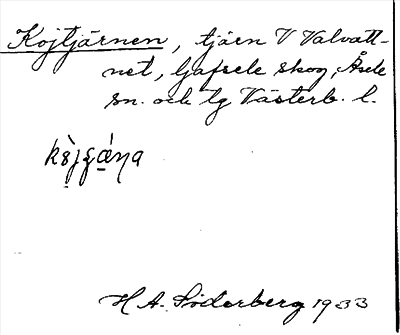 Kojtjärnen, tjärn V Valvatt-
net, Gafsele skog, Åsele
sn. och tg Västerb. l.
H A. Söderberg 1933